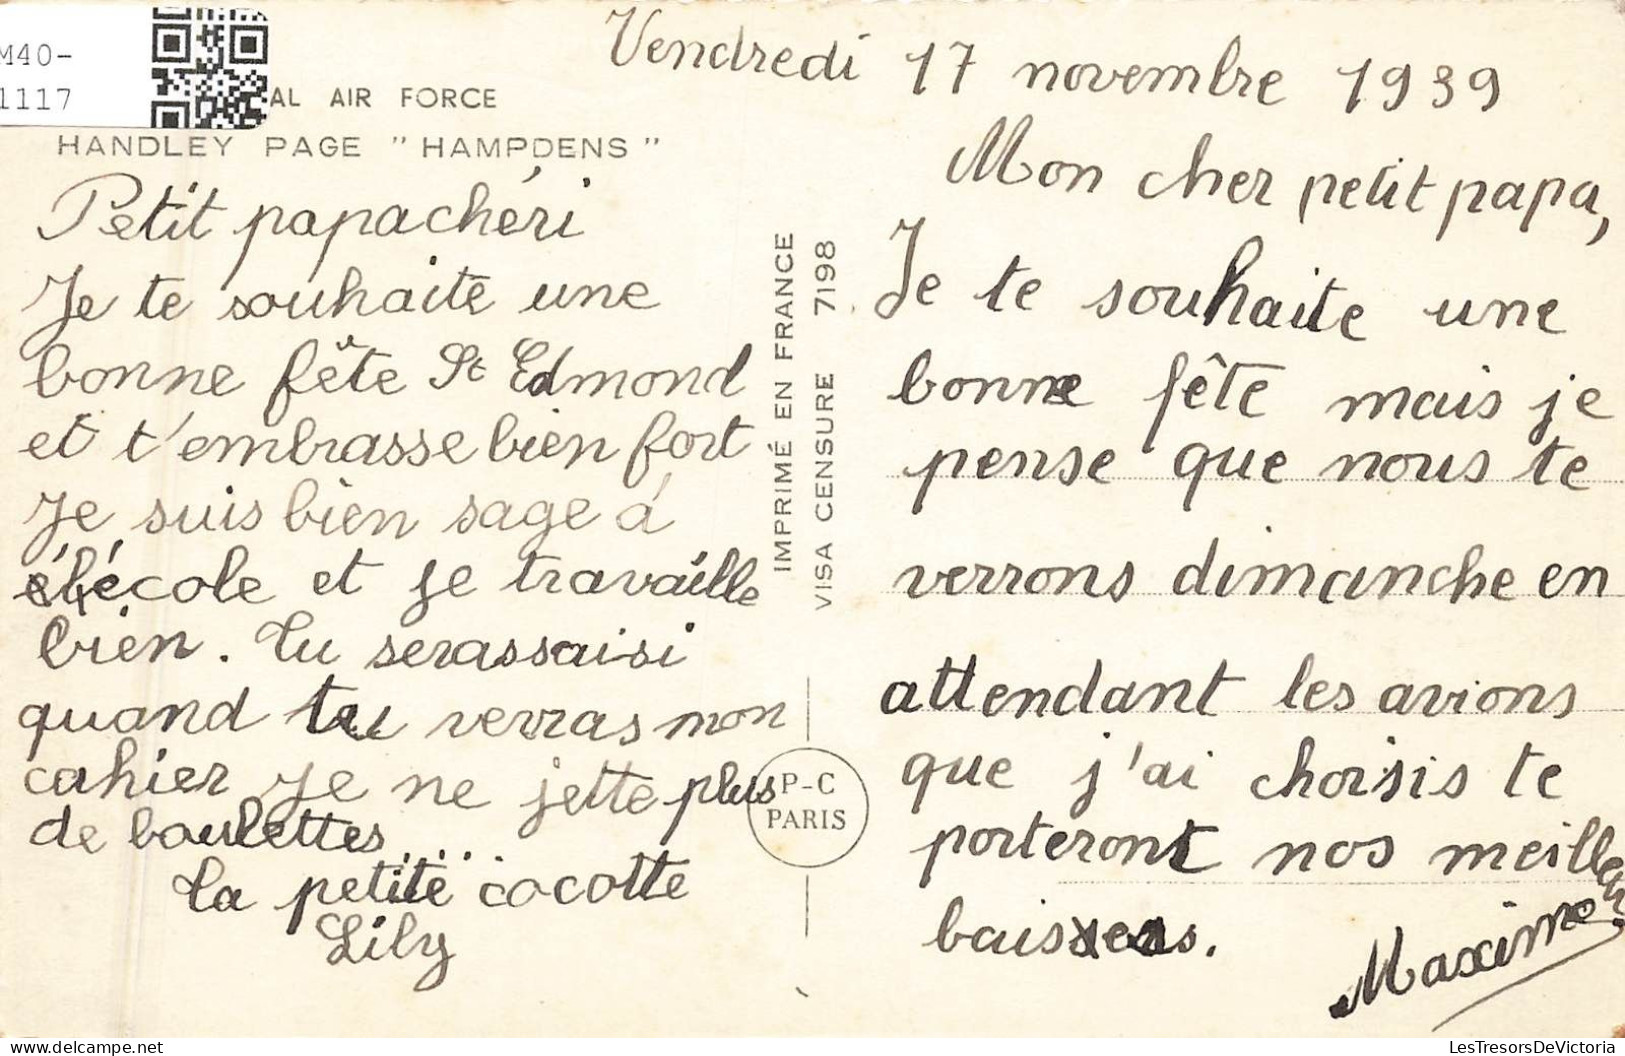 M40-
1117
AL AIR FORCE
HANDLEY PAGE " HAMPDENS "
Petit papa chéri
Je te souhaite une
bonne fête St Edmond
et t'embrasse bien fort
Je suis bien sage à
l'école et je travaille
bien. Tu seras saisi
quand tu verras mon
cahier Je ne jette plus
de boulettes....
Ta petite cocotte
Lily
IMPRIMÉ EN FRANCE
VISA CENSURE 7198
P-C
PARIS
Vendredi 17 novembre 1939
Mon cher petit papa,
Je te souhaite une
bonne fête mais je
pense que nous te
verrons dimanche en
attendant les avions
que j'ai choisis te
porteront nos meilleurs
baisers.
Maxime
LesTresorsDeVictoria.com